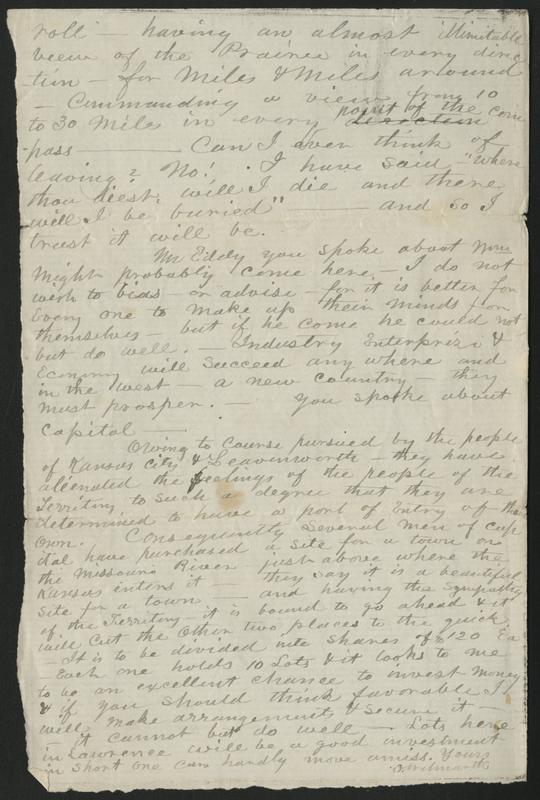 roll — having an almost illimitable
view of the Prairie in every direc
-tion — for Miles & Miles around
— Commanding a view from 10
to 30 Miles in every direction point of the com
-pass — Can I even think of
leaving? No! I have said "Where
thou diest, will I die and there
will I be buried" — and so I
trust it will be.
Mr Eddy you spoke about
might probably come here — I do not
wish to bias — or advise — for it is better for
Every one to make up their minds for
themselves — but if he come he could not
but do well. — Industry Enterprize &
Economy will succeed any where and
in the west — a new country — they
must prosper. — You spoke about
Capital —
Owing to course pursued by the people
of Kansas City & Leavenworth — they have
alienated the feelings of the people of the
Territory to such a degree that they are
determined to have a port of Entry of their
own. Consequently several men of cap
ital have purchased a site for a town on
the Missouri River just above where the
Kansas enters it — they say it is a beautiful
site for a town — and having the sympathy
of the Territory — it is bound to go ahead & it
will cut the other two places to the quick.
— It is to be divided into shares of $120 Ea
Each one holds 10 Lots & it looks to me
to be an excellent chance to invest money
& if you should think favorable I
will make arrangements & secure it —
it cannot but do well — Lots here
in Lawrence will be a good investment
in short one can hardly move amiss. Yours
O. Wilmarth